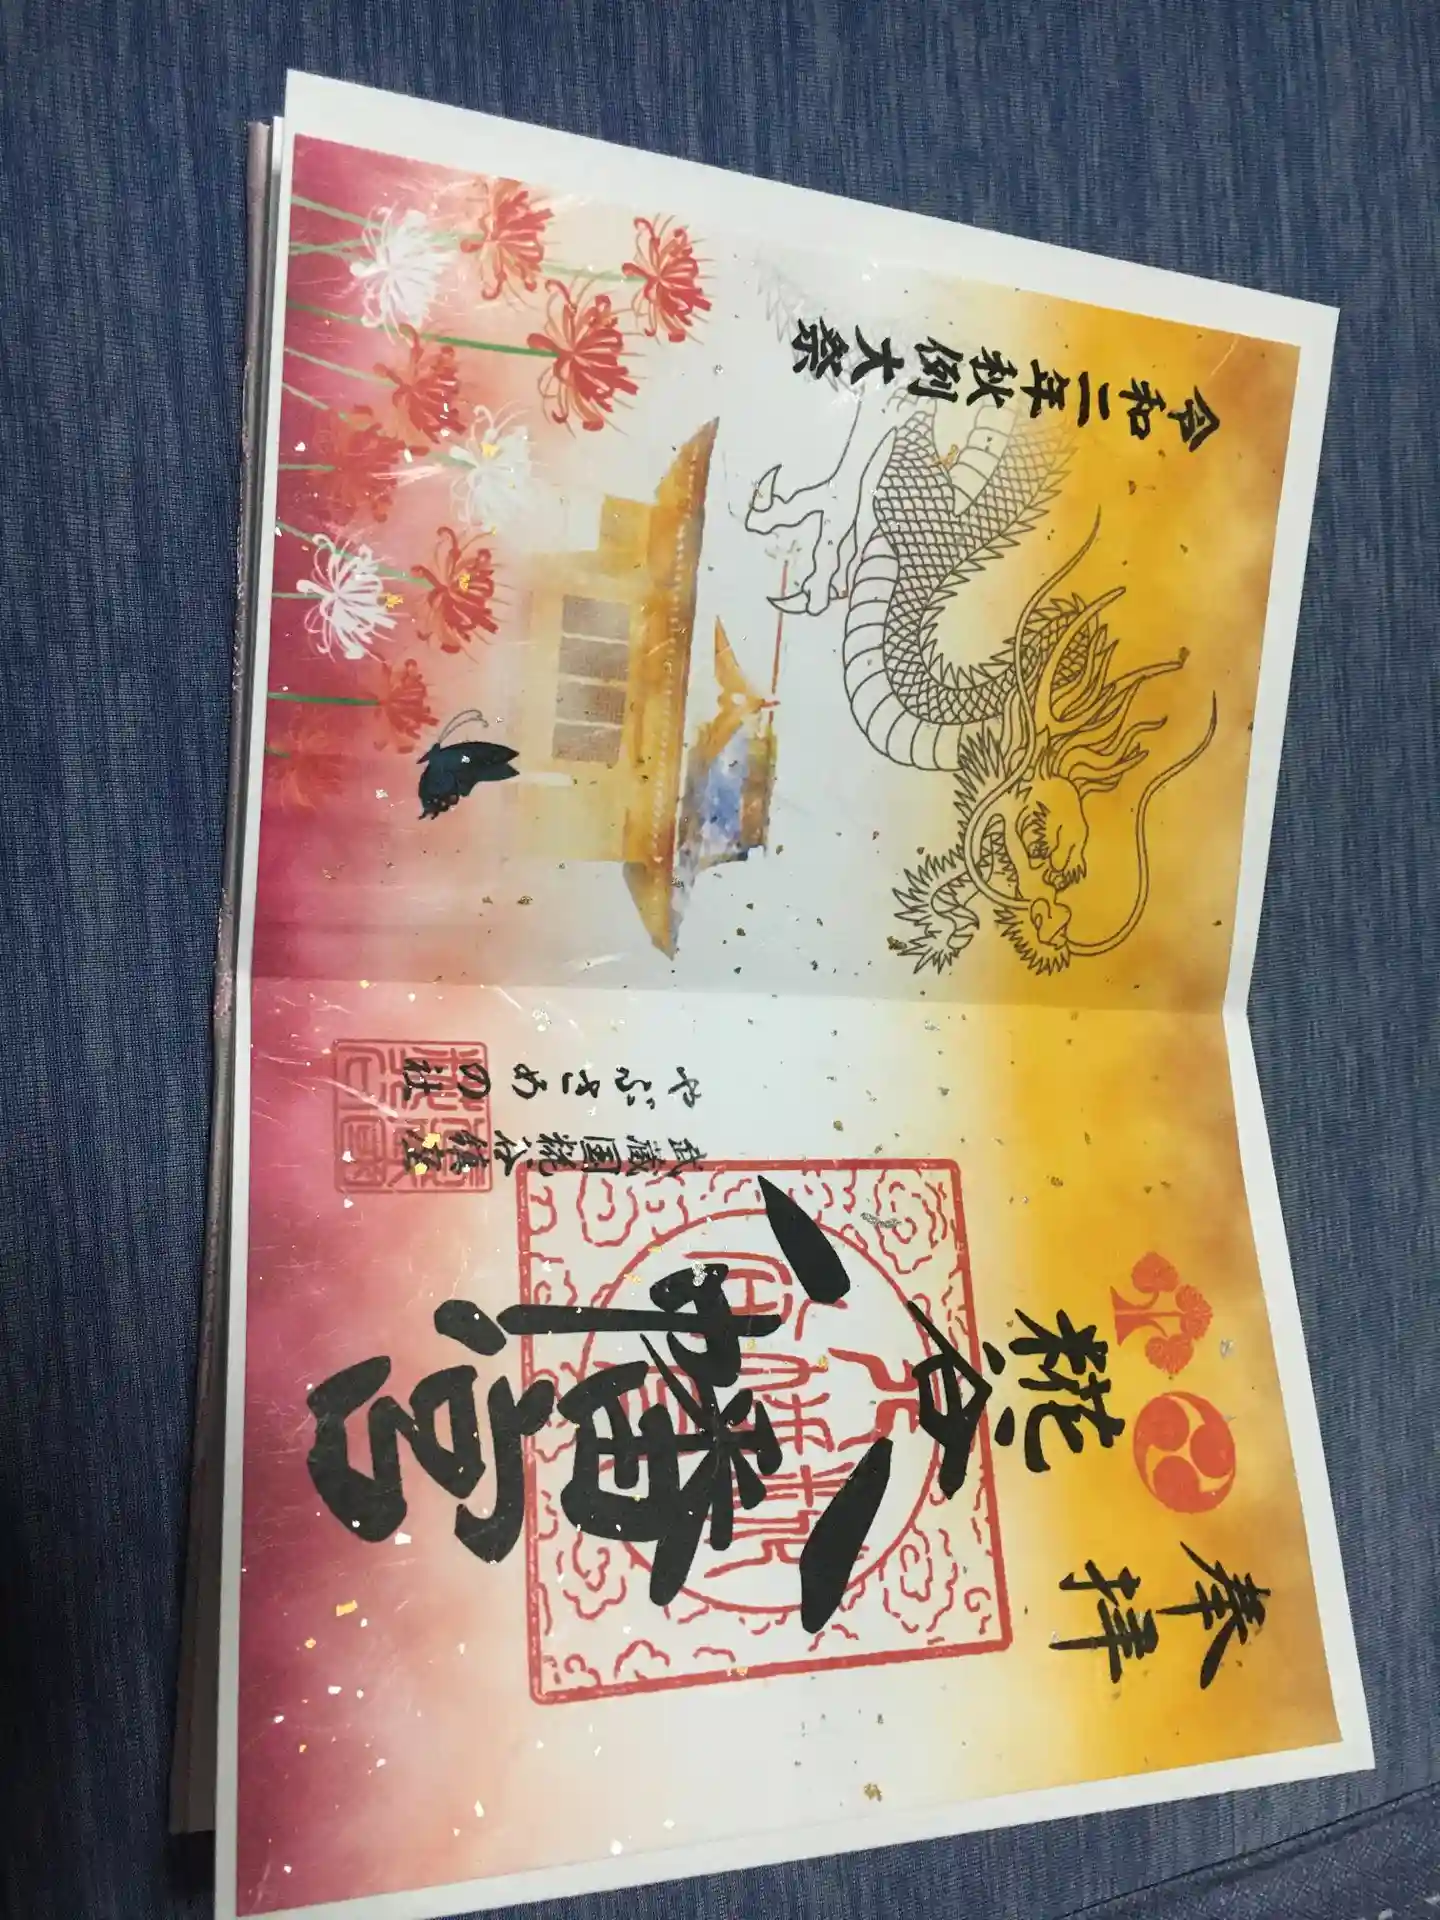 奉拝
糀谷
八幡宮
武蔵国糀谷鎮座
やぶさめの社
令和二年秋例大祭